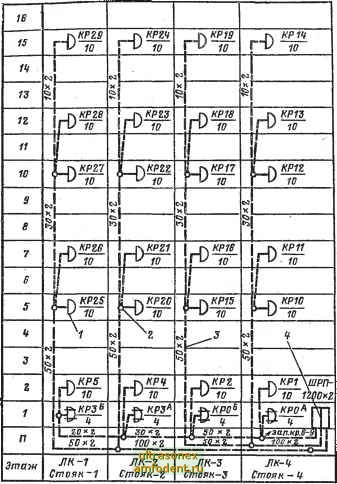 16
15 КР29 КР24 КР19 КР14
10 10 10 10
14
13
10×2 10×2 10×2 10×2
12 КР28 КР23 КР18 КР13
10 10 10 10
11
10 КР27 КР22 КР17 КР12
10 10 10 10
9
30×2 30×2 30×2 30×2
8
7 КР26 КР21 КР16 КР11
10 10 10 10
6
5 КР25 КР20 КР15 КР10
10 10 10 10
1 2 3 4
4
50×2 50×2 50×2 50×2
3
2 КР5 КР4 КР2 КР1
10 10 10 10
ШРП-
1200×2
1 КР3Б КР3А КР0Б КР0А
4 4 4 4
20×2 30×2 50×2
П 50×2 100×2 100×2
Этаж ЛК-1 ЛК-3 ЛК-4
Стояк-1 Стояк-3 Стояк-4
ultrasonex
amfodent.ru